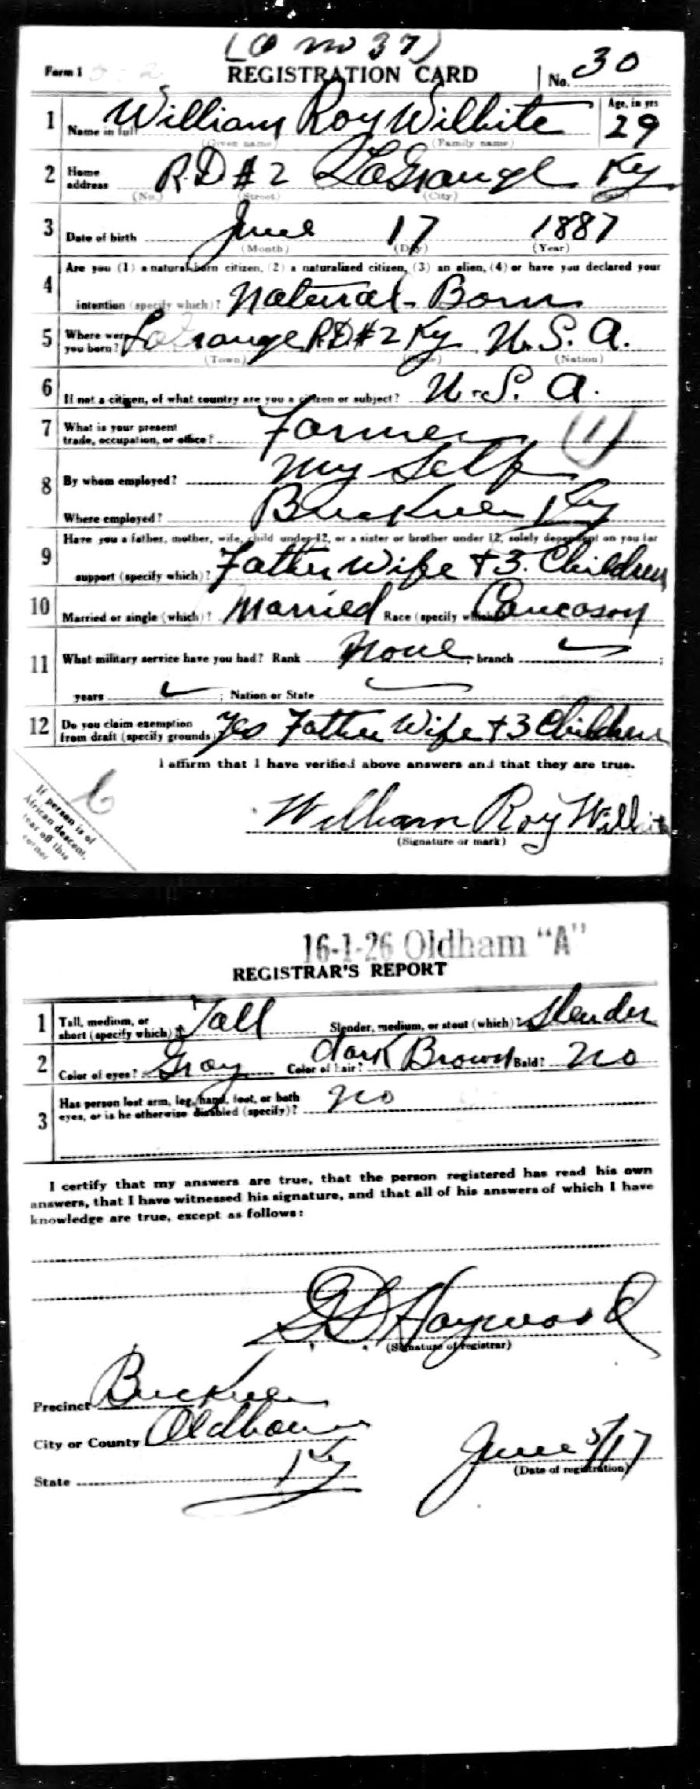 (O no 37)
Form 1 REGISTRATION CARD No. 30
1 Name in full William Roy Wilhite Age, in yrs 29
(Given name) (Family name)
2 Home address R.D #2 LaGrange Ky
(No.) (Street) (City) (State)
3 Date of birth June 17 1887
(Month) (Day) (Year)
4 Are you (1) a natural-born citizen, (2) a naturalized citizen, (3) an alien, (4) or have you declared your
intention (specify which)? Natural-Born
5 Where were you born? LaGrange RD#2 Ky U.S.A.
(Town) (State) (Nation)
6 If not a citizen, of what country are you a citizen or subject? U.S.A.
7 What is your present trade, occupation, or office? Farmer (1)
8 By whom employed? My Self
Where employed? Buckner Ky
9 Have you a father, mother, wife, child under 12, or a sister or brother under 12, solely dependent on you for
support (specify which)? Father Wife + 3. Children
10 Married or single (which)? Married Race (specify which)? Caucason
11 What military service have you had? Rank None, branch ;
years ; Nation or State
12 Do you claim exemption from draft (specify grounds)? Yes Father Wife + 3 Children
I affirm that I have verified above answers and that they are true.
6
William Roy Wilhite
(Signature or mark)
If person is of
African descent,
tear off this
corner
16-1-26 Oldham "A"
REGISTRAR'S REPORT
1 Tall, medium, or short (specify which)? Tall Slender, medium, or stout (which)? Slender
2 Color of eyes? Gray Color of hair? dark Brown Bald? no
3 Has person lost arm, leg, hand, foot, or both
eyes, or is he otherwise disabled (specify)? no
I certify that my answers are true, that the person registered has read his own
answers, that I have witnessed his signature, and that all of his answers of which I have
knowledge are true, except as follows:
Haywood
(Signature of registrar)
Precinct Buckner
City or County Oldham
State Ky
June 5/17
(Date of registration)